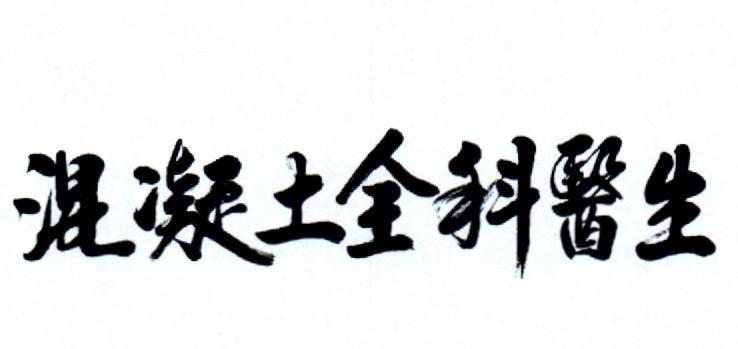 混凝土全科醫生